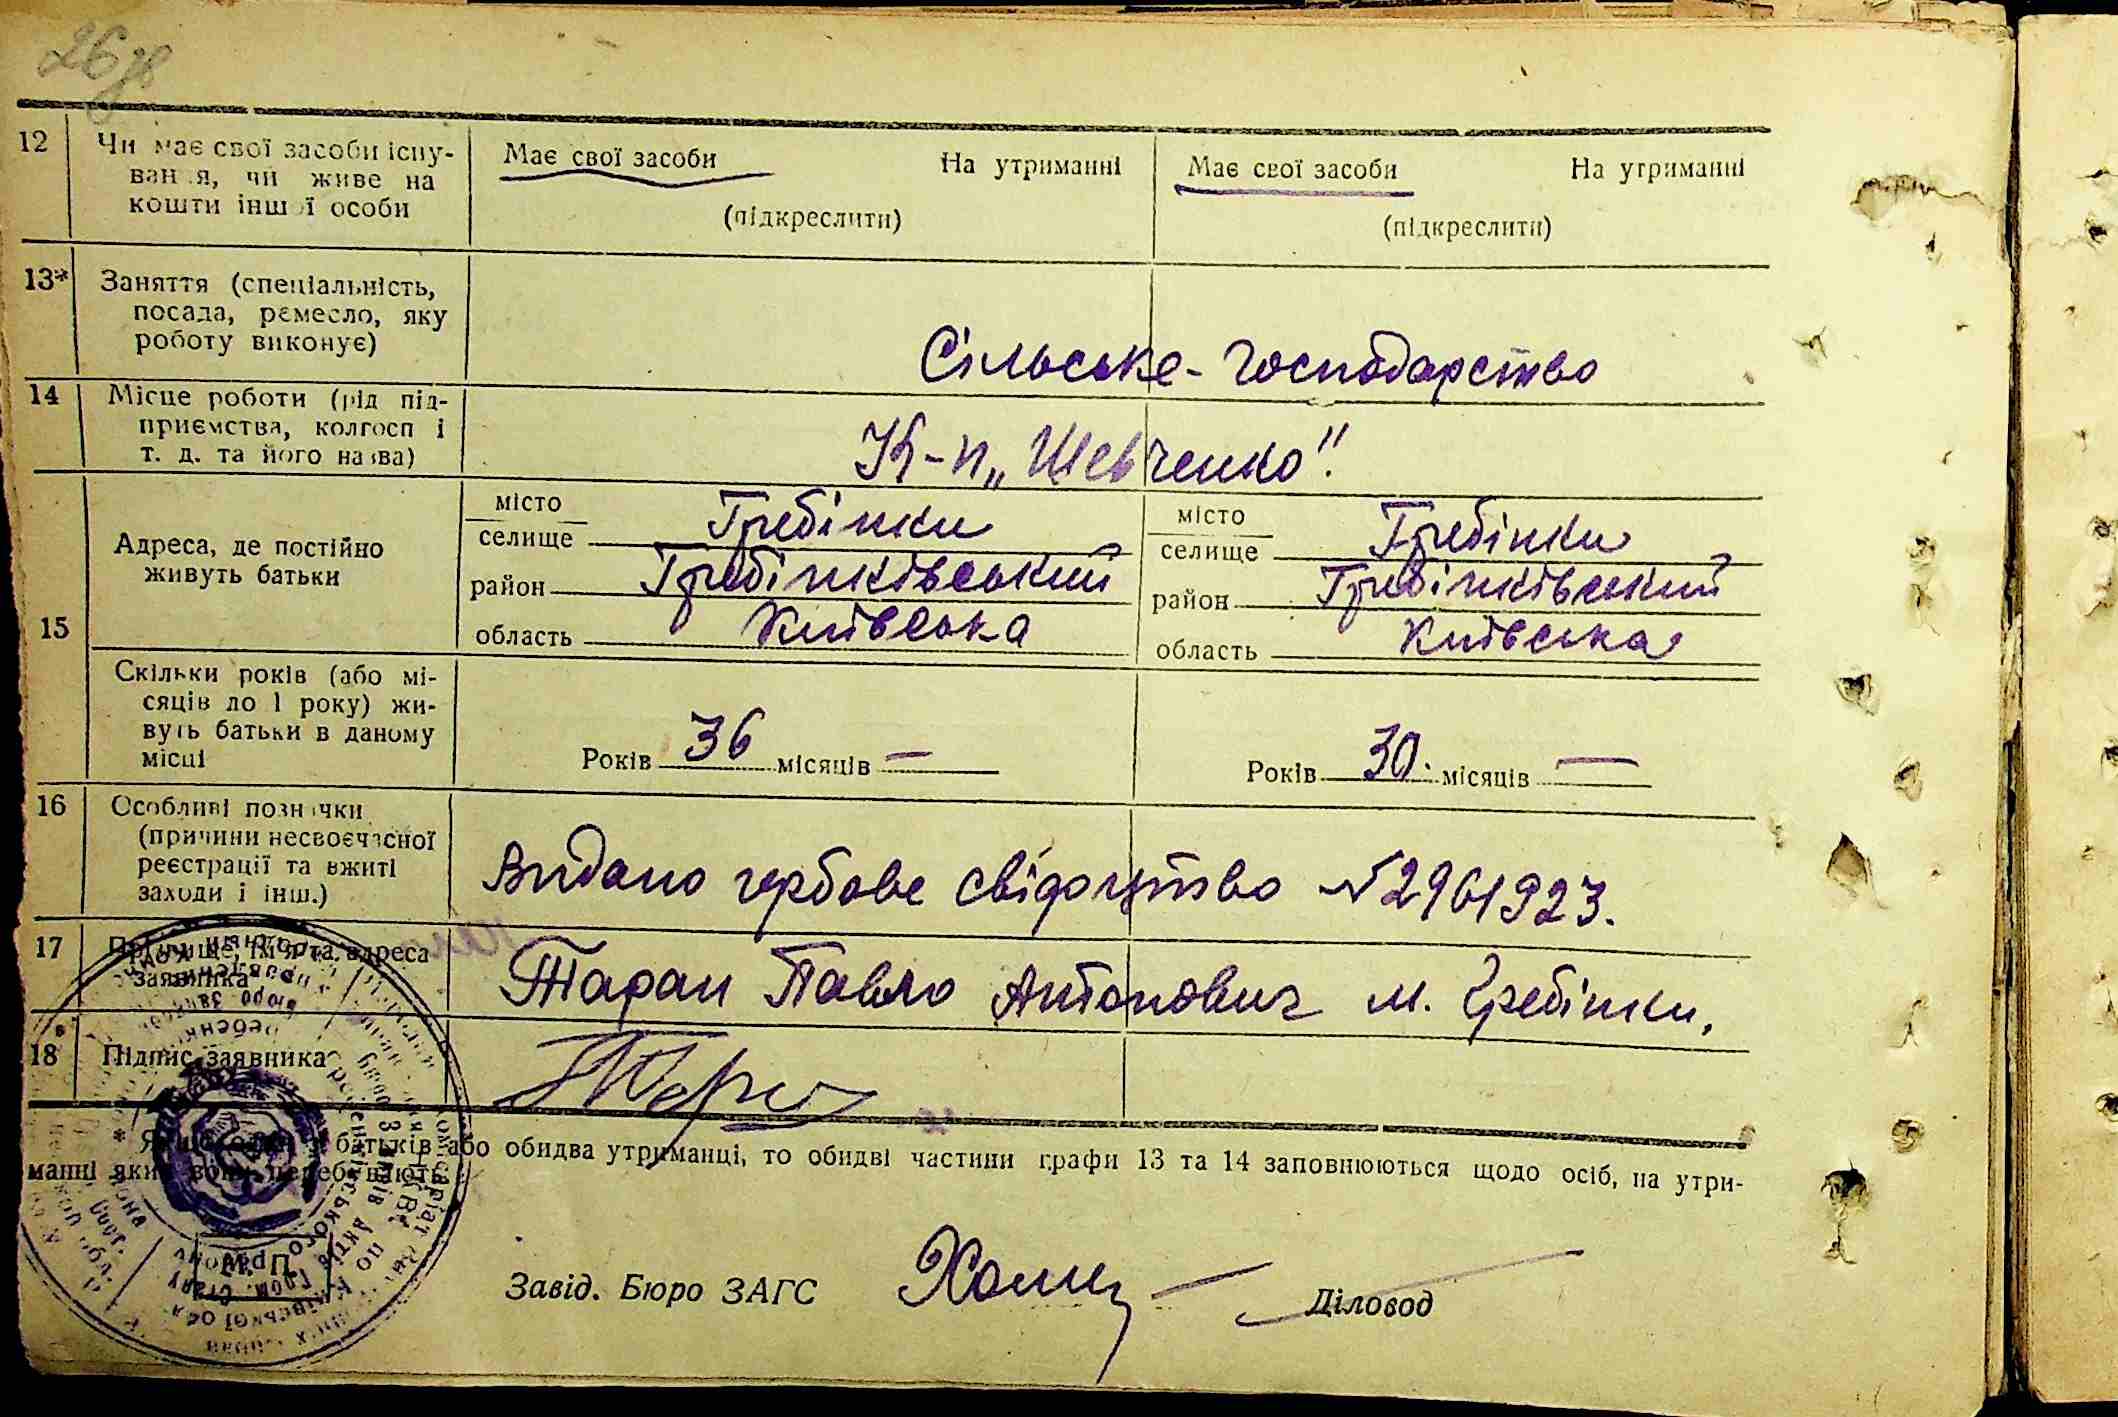 26 зв
12 Чи має свої засоби існу-
вання, чи живе на
кошти іншої особи
Має свої засоби На утриманні
(підкреслити)
Має свої засоби На утриманні
(підкреслити)
13* Заняття (спеціальність,
посада, ремесло, яку
роботу виконує)
Сільське-господарство
14 Місце роботи (рід під-
приємства, колгосп і
т. д. та його назва)
К-п „Шевченко".
15 Адреса, де постійно
живуть батьки
місто
селище Гребінки
район Гребінківський
область Київська
місто
селище Гребінки
район Гребінківський
область Київська
Скільки років (або мі-
сяців до 1 року) жи-
вуть батьки в даному
місці
Років 36 місяців —
Років 30. місяців —
16 Особливі позначки
(причини несвоєчасної
реєстрації та вжиті
заходи і інш.)
Видано гербове свідоцтво №2961923.
17 Прізвище, ім'я та адреса
заявника
Таран Павло Антонович м. Гребінки,
18 Підпис заявника
* Якщо один з батьків або обидва утриманці, то обидві частини графи 13 та 14 заповнюються щодо осіб, на утри-
манні яких вони перебувають.
Завід. Бюро ЗАГС
Діловод